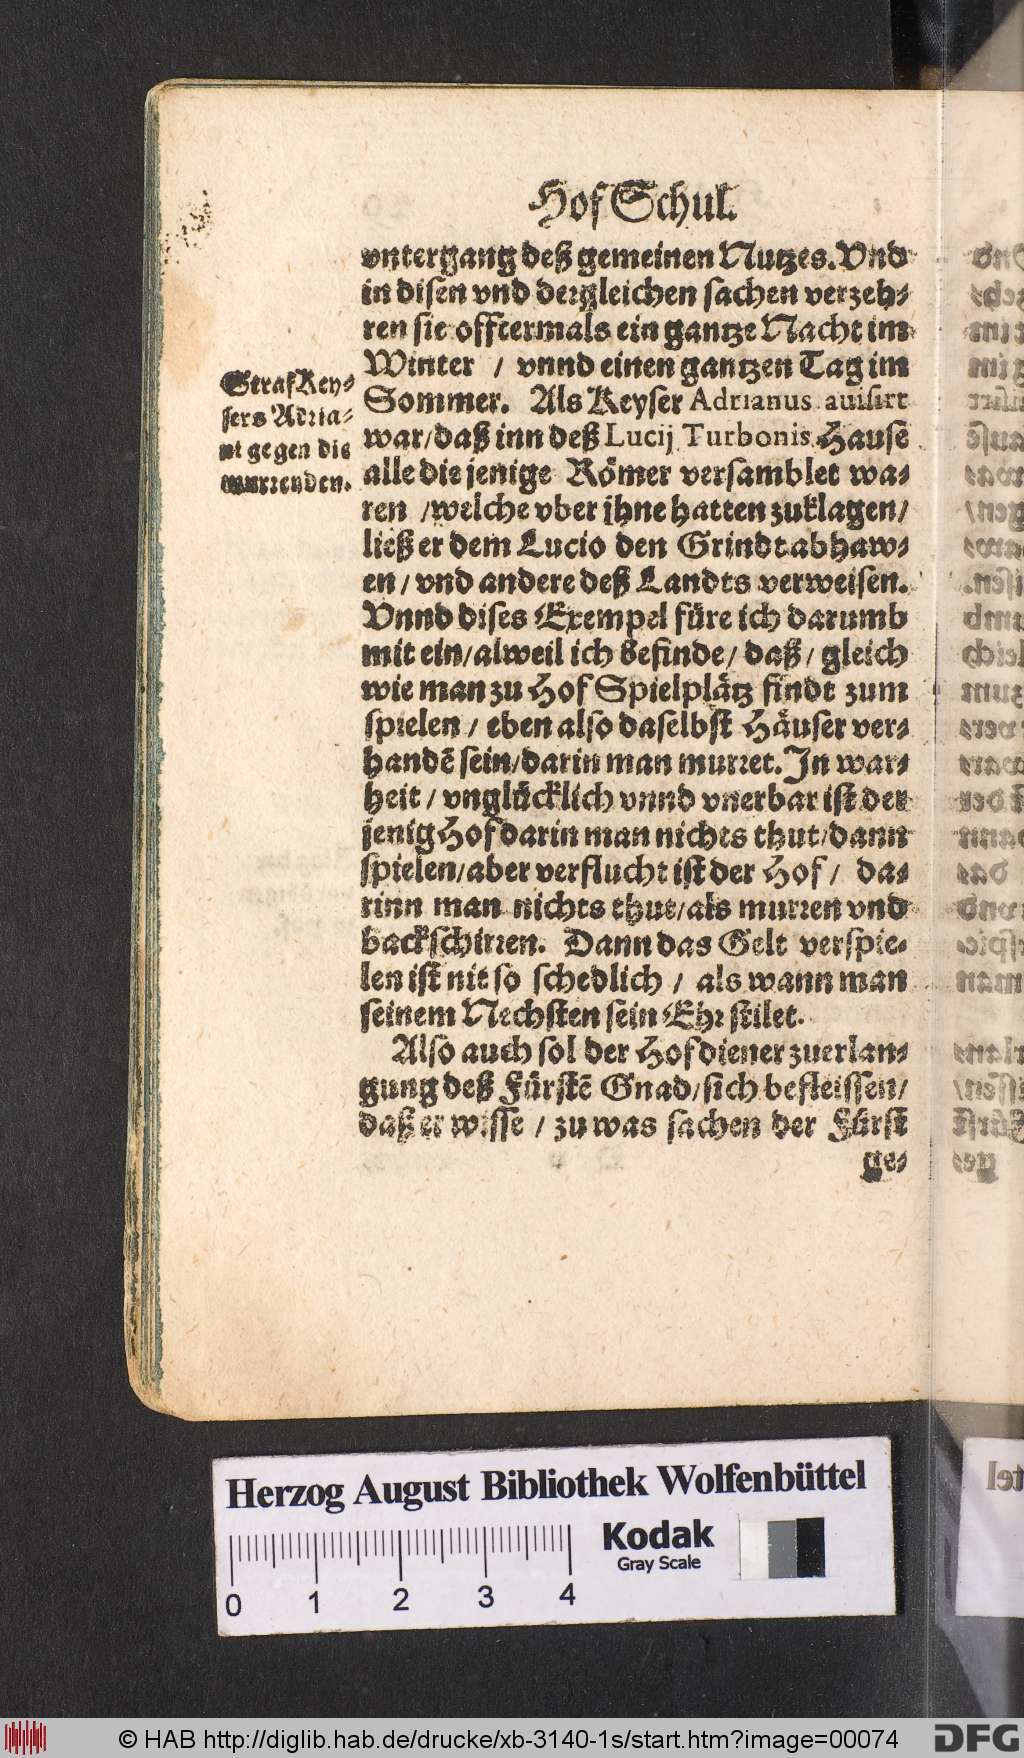 Hof Schul.
vntergang deß gemeinen Nutzes. Vnd
in disen vnd dergleichen sachen verzeh-
ren sie offtermals ein gantze Nacht im
Winter / vnnd einen gantzen Tag im
Sommer. Als Keyser Adrianus auisirt
war/daß inn deß Lucij Turbonis Hause
alle die jenige Römer versamblet wa-
ren /welche vber jhne hatten zuklagen/
ließ er dem Lucio den Grindt abhaw-
en / vnd andere deß Landts verweisen.
Vnnd dises Exempel füre ich darumb
mit ein/alweil ich befinde/ daß/ gleich
wie man zu Hof Spielplätz findt zum
spielen / eben also daselbst Häuser ver-
handē sein/darin man murret. In war-
heit / vnglücklich vnnd vnerbar ist der
jenig Hof darin man nichts thut/dann
spielen/aber verflucht ist der Hof / da-
rinn man nichts thut/als murren vnd
backschirren. Dann das Gelt verspie-
len ist nit so schedlich / als wann man
seinem Nechsten sein Ehr stilet.
Also auch sol der Hofdiener zuerlan-
gung deß Fürstē Gnad/sich befleissen/
daß er wisse / zu was sachen der Fürst
ge-
Straf Key-
sers Adria-
ni gegen die
murrenden.
Herzog August Bibliothek Wolfenbüttel
Kodak
Gray Scale
0 1 2 3 4
© HAB http://diglib.hab.de/drucke/xb-3140-1s/start.htm?image=00074
DFG